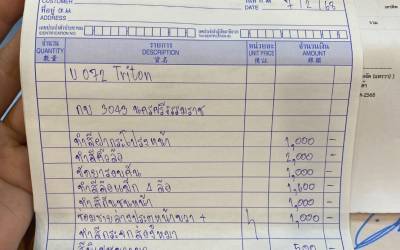 CUSTOMER
ที่อยู่
ADDRESS
วันที่
DATE
เลขประจำตัวผู้เสียภาษี
IDENTIFICATION NO.
จำนวน รายการ หน่วยละ จำนวนเงิน
QUANTITY DESCRIPTION UNIT PRICE AMOUNT
數量 貨名 價目 銀額
U 072 Triton
กบ 3043 นครศรีธรรมราช
ทำสีฝากระโปรงหน้า 1,000 -
ทำสีคิ้วล้อ 2,000 -
ขัดยารอบคัน 1,000 -
ทำสีล้อแม็ก 4 ล้อ 1,600 -
ทำสีกันชนหน้า 1,000 -
ซ่อมชายล่างประตูหน้าขวา + 1,000 -
500 -